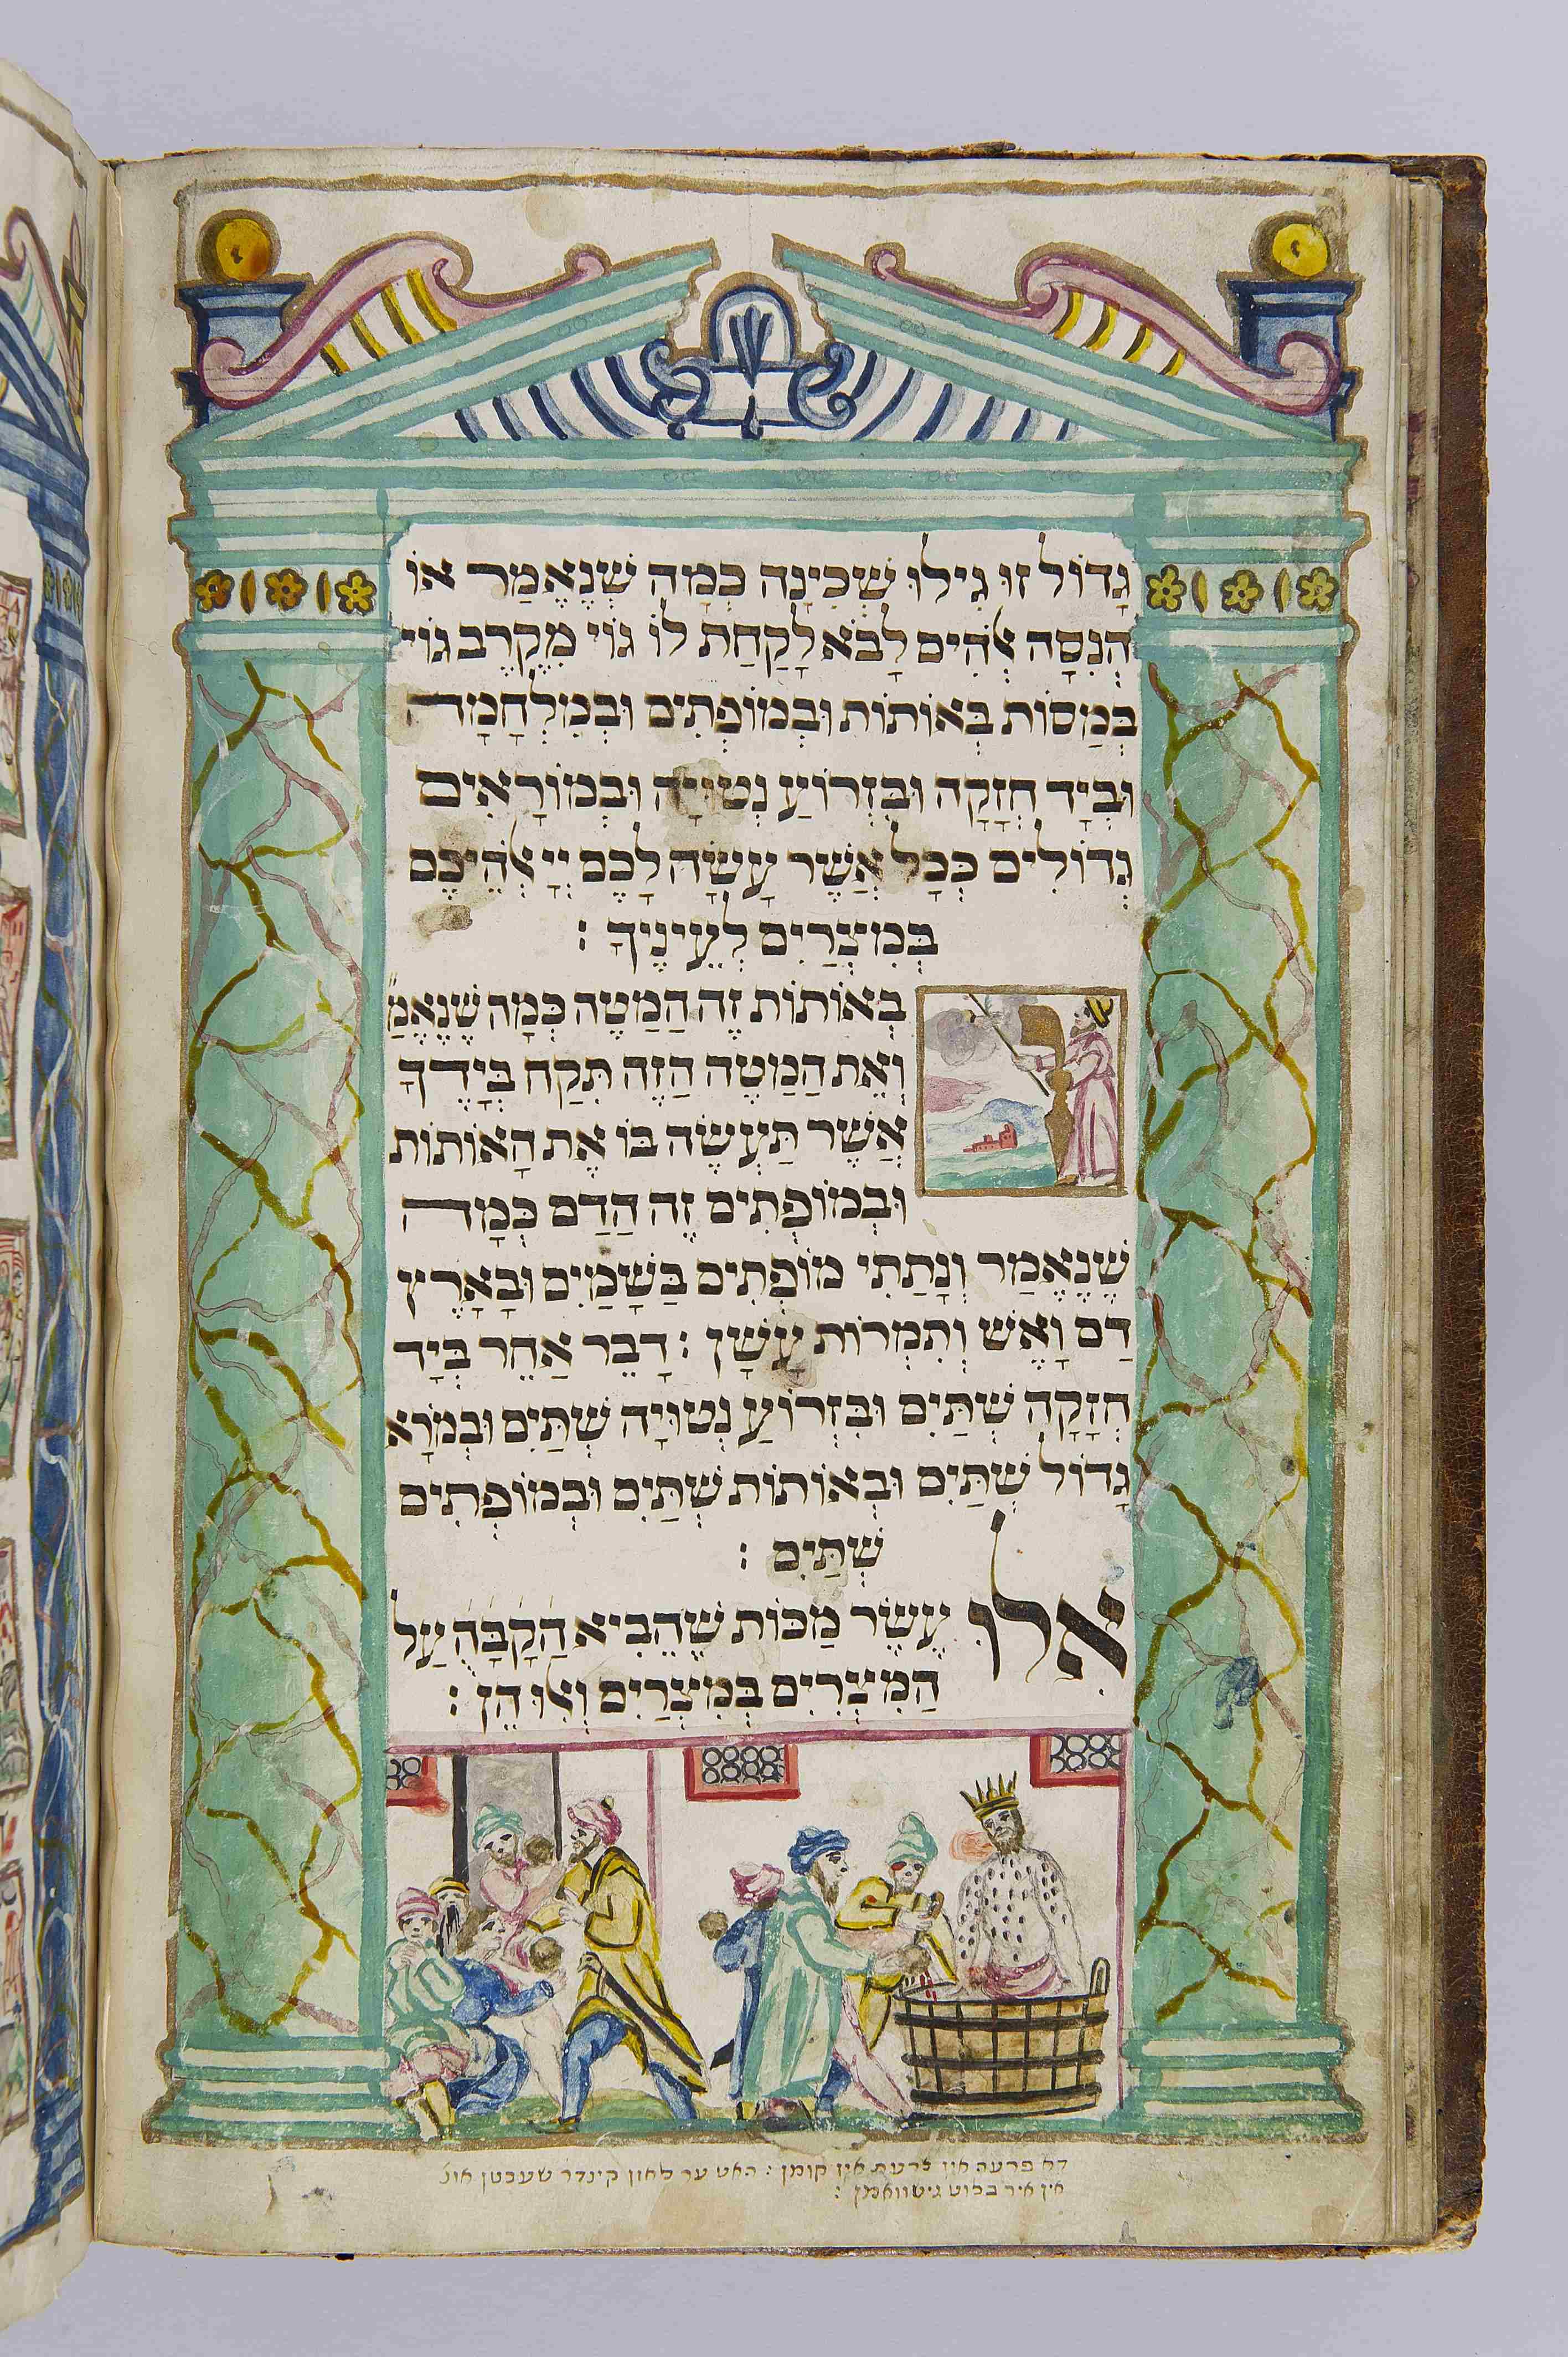 גָּדוֹל זוּ גִילוּ שְׁכִינָה כְּמָה שֶׁנֶאֱמַר אוֹ
הֲנִסָּה אֱלֹהִים לָבֹא לָקַחַת לוֹ גוֹי מִקֶרֶב גּוֹי
בְּמַסּוֹת בְּאוֹתוֹת וּבְמוֹפְתִים וּבְמִלְחָמָה
וּבְיָד חֲזָקָה וּבִזְרוֹעַ נְטוּיָה וּבְמוֹרָאִים
גְדוֹלִים כְּכָל אֲשֶׁר עָשָׂה לָכֶם יְיָ אֱלֹהֵיכֶם
בְּמִצְרַיִם לְעֵינֶיךָ :
בְאוֹתוֹת זֶה הַמַטֶה כְּמָה שֶׁנֶאֱמַ״
וְאֶת הַמַטֶה הַזֶה תִּקַח בְּיָדֶךָ
אֲשֶׁר תַּעְשֶׂה בּוֹ אֶת הָאוֹתוֹת
וּבְמוֹפְתִים זֶה הַדַם כְּמָה
שֶׁנֶאֱמַר וְנָתַתִי מוֹפְתִים בַּשָׁמַיִם וּבָאָרֶץ
דַם וָאֵשׁ וְתִמְרוֹת עָשָׁן : דָבָר אַחֵר בְּיָד
חֲזָקָה שְׁתַּיִם וּבִזְרוֹעַ נְטוּיָה שְׁתַּיִם וּבְמֹרָא
גָדוֹל שְׁתַּיִם וּבְאוֹתוֹת שְׁתַּיִם וּבְמוֹפְתִים
שְׁתַּיִם :
אִלוּ עֶשֶׂר מַכּוֹת שֶׁהֵבִיא הַקָבָּ״ה עַל
הַמִצְרִים בְּמִצְרַיִם וְאִלוּ הֵן :
דא פרעה אין צרעת איז קומן : האט ער לאזן קינדר שעכטן אונ
אין איר בלוט גיטוואגן :